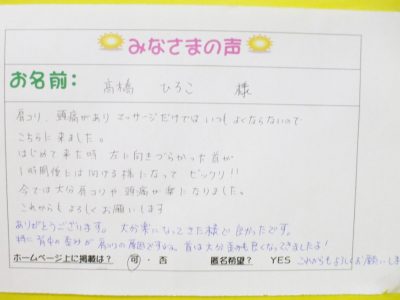 みなさまの声
お名前： 高橋 ひろこ 様
肩コリ、頭痛があり マッサージだけでは いつも よくならないので
こちらに来ました。
はじめて来た時 左に向きづらかった首が
1時間後には向ける様になって ビックリ!!
今では大分肩コリや頭痛が楽になりました。
これからも よろしくお願いします
ありがとうございます。大分楽になってきた様で良かったです。
特に背中の歪みが肩コリの原因ですから、首は大分歪みも良くなってきましたよ!
ホームページ上に掲載は？ 可・否 匿名希望？ YES これからもよろしくお願いしま